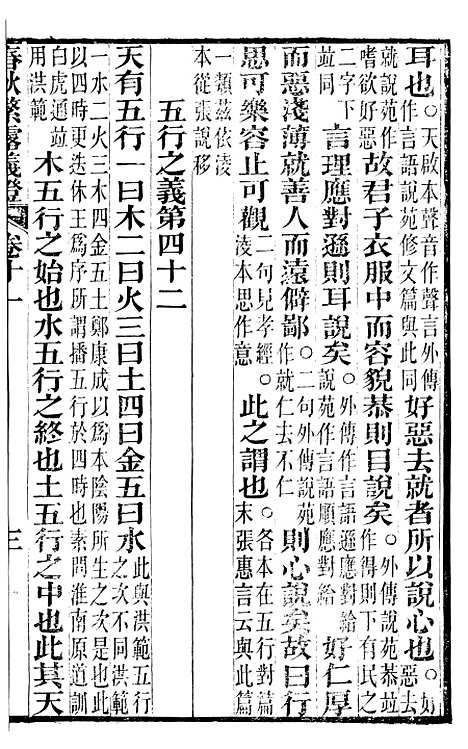 耳也○天啟本聲音作聲言外傳作言語說苑修文篇與此同好惡去就者所以說心也○好惡去
就說苑作嗜欲好惡故君子衣服中而容貌恭則目說矣○外傳說苑恭竝作得則下有民之
二字下竝同言理應對遜則耳說矣○外傳作言語遜應對給說苑作言語順應對給好仁厚
而惡淺薄就善人而遠僻鄙○二句外傳說苑作就仁去不仁則心說矣故曰行
思可樂容止可觀二句見孝經○淩本思作意此之謂也○各本在五行對篇末張惠言云與此篇
一類茲依淩本從張說移
五行之義第四十二
天有五行一曰木二曰火三曰土四曰金五曰水此與洪範五行之次不同洪範
一水二火三木四金五土鄭康成以爲本陰陽所生之次是也此以四時更迭休王爲序所謂播五行於四時也素問淮南原道訓
白虎通竝用洪範木五行之始也水五行之終也土五行之中也此其天
春秋繁露義證 卷十一 三